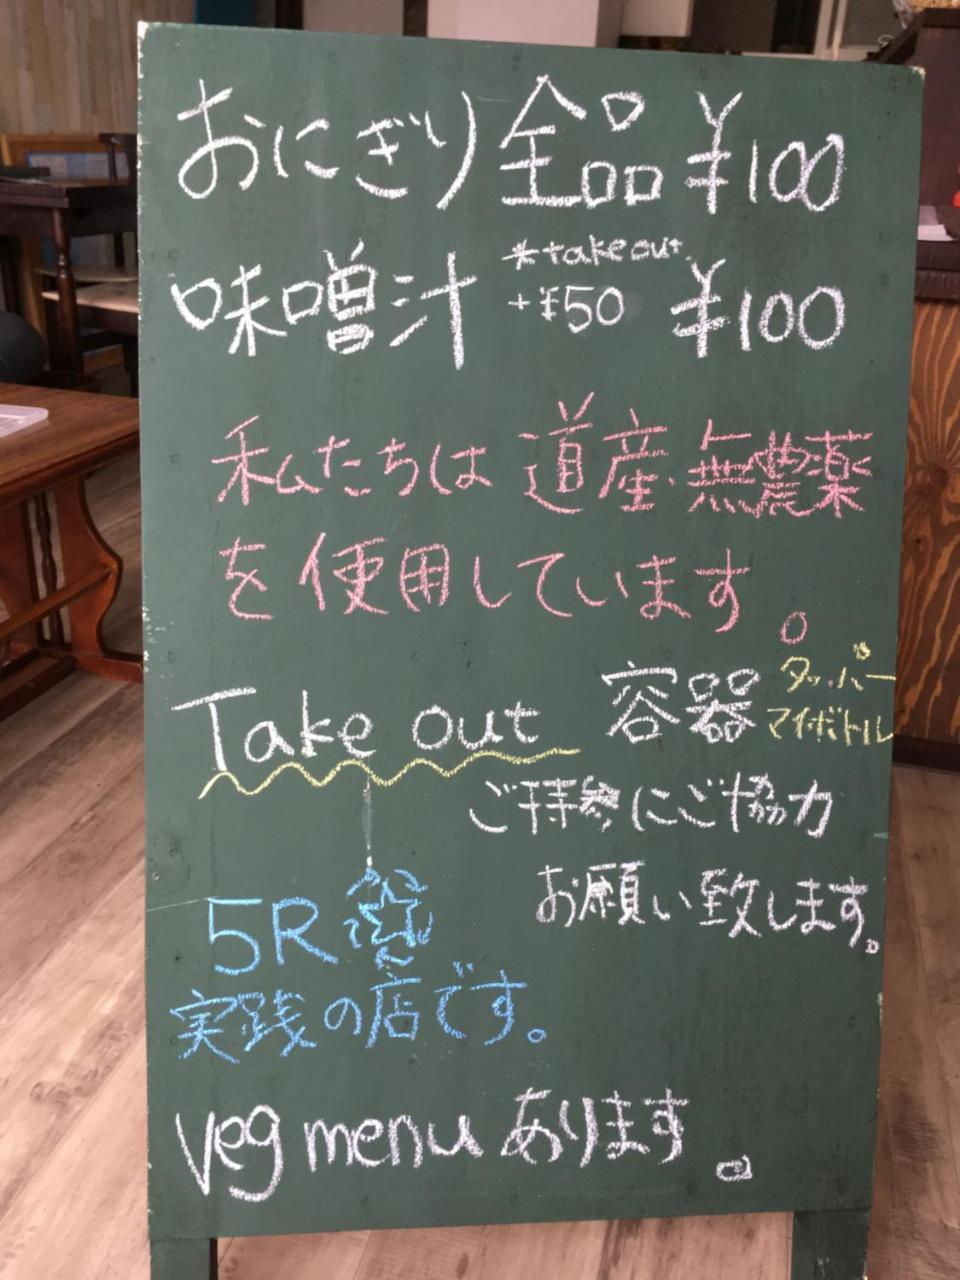 おにぎり全品 ¥100
味噌汁 *takeout +¥50 ¥100
私たちは道産・無農薬
を使用しています。
Take out 容器 タッパー マイボトル
ご持参にご協力
お願い致します。
5R
実践の店です。
veg menu あります。